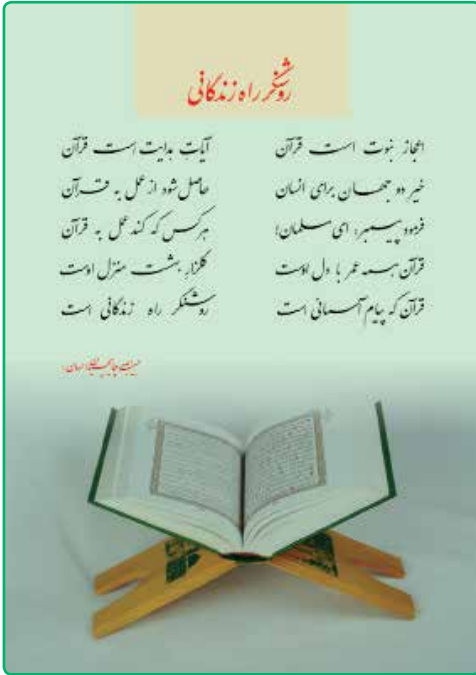 روشنگر راه زندگانی
اعجاز نبوت است قرآن آیات هدایت است قرآن
خیر دو جهان برای انسان حاصل شود از عمل به قرآن
فرمود پیمبر: ای مسلمان! هر کس که کند عمل به قرآن
قرآن همه عمر با دل اوست گلزار بهشت منزل اوست
قرآن که پیام آسمانی است روشنگر راه زندگانی است